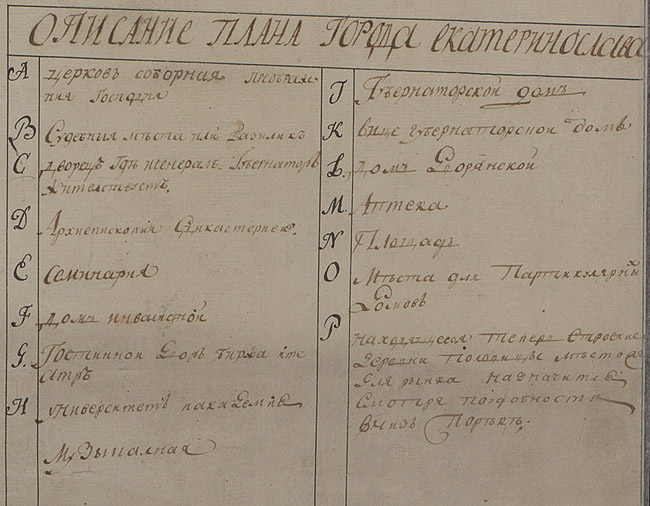 ОПИСАНИЕ ПЛАНА ГОРОДА ЕКАТЕРИНОСЛАВА
A церковъ соборная преображе-
ния Господня
B Судебныя мѣста или Базиликъ
C дворецъ Гдѣ Генералъ Губернаторъ
жителствуетъ.
D Архиепископия
E Семинария
F домъ инвалидной
G. Гостинной дворъ биржа ите
атръ
H университетъ накадемие
Музыкалная
I Губернаторской домъ
K вице губернаторской домъ
L. домъ Дворянской
M. Аптека
N Площадь
O Мѣста для Партикулярныхъ
Домовъ
P находящееся теперь строение
деревни Половицы мѣсто
для рынка назначится
смотря по удобности
внизъ Порѣкѣ.